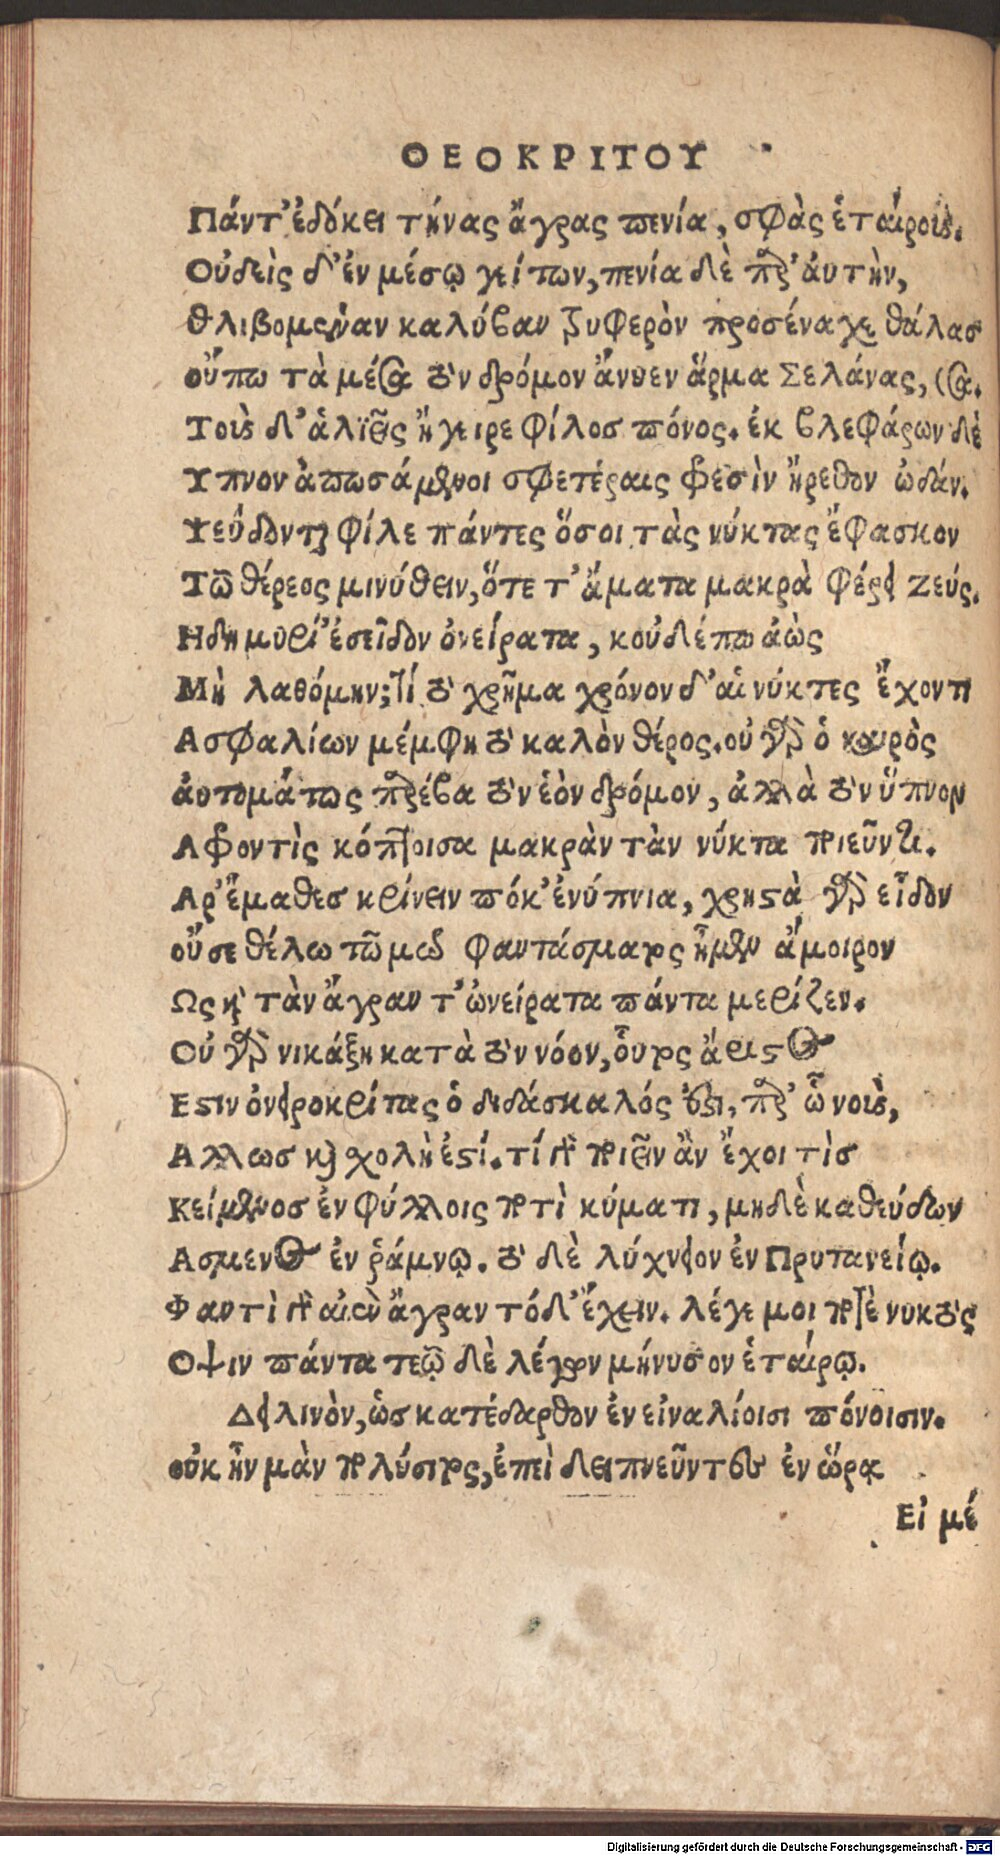 ΘΕΟΚΡΙΤΟΥ
Πάντ' ἐδόκει τήνας ἄγρας πενία, σφὰς ἑταίροις.
Οὐδεὶς δ' ἐν μέσῳ γείτων, πενία δὲ παρ' ἀυτὴν,
Θλιβομέναν καλύβαν τρυφερὸν προσέναχε θάλασ
οὔπω τὰ μέσα τὸν δρόμον ἄνυεν ἅρμα Σελάνας, (σα.
Τοὺς δ' ἁλϊεῖς ἤγειρε φίλοσ πόνος. ἐκ βλεφάρων δὲ
Υπνον ἀπωσάμενοι σφετέραις φρεσὶν ἤρεθον ὠδάν.
Ψεύδονται φίλε πάντες ὅσοι τὰς νύκτας ἔφασκον
Τῶ θέρεος μινύθειν, ὅτε τ' ἄματα μακρὰ φέρει Ζεύς.
Ηδη μυρί' ἐσεῖδον ὀνείρατα, κοὐδέπω ἀὼς
Μὴ λαθόμην; τί τὸ χρῆμα χρόνον δ' αἱ νύκτες ἔχοντι
Ασφαλίων μέμφη τὸ καλὸν θέρος. οὐ γὰρ ὁ καιρὸς
ἀυτομάτως παρέβα τὸν ἑὸν δρόμον, ἀλλὰ τὸν ὕπνον
Α φροντὶς κόπτοισα μακρὰν τὰν νύκτα ποιεῦντι.
Αρ' ἔμαθεσ κρίνειν πόκ' ἐνύπνια, χρηστὰ γὰρ εἶδον
οὔ σε θέλω τῶ μῶ φαντάσματος ἦμεν ἄμοιρον
Ως καὶ τὰν ἄγραν τ' ὠνείρατα πάντα μερίζεν.
Οὐ γὰρ νικάξη κατὰ τὸν νόον, οὗτος ἄριστος
Εστιν ὀνειροκρίτας ὁ διδάσκαλός ἐστι, παρ' ὧ νοῦς,
Αλλωσ καὶ χολὴ ἐστί. τί γὰρ ποιεῖν ἂν ἔχοι τὶσ
Κείμενοσ ἐν φύλλοις ποτὶ κύματι, μηδὲ καθεύδων
Ασμενος ἐν ῥάμνῳ. τὸ δὲ λύχνειον ἐν Πρυτανείῳ.
Φαντὶ γὰρ αἰὲν ἄγραν τόδ' ἔχειν. λέγε μοι ποτὲ νυκτὸς
Οψιν πάντα τεῷ δὲ λέγων μήνυσον ἑταίρῳ.
Δειλινὸν, ὡσ κατέδαρθον ἐν εἰναλίοισι πόνοισιν.
οὐκ ἦν μὰν πολύσιτος, ἐπεὶ δειπνεῦντες ἐν ὥρᾳ
Εἰ μέ
Digitalisierung gefördert durch die Deutsche Forschungsgemeinschaft - DFG